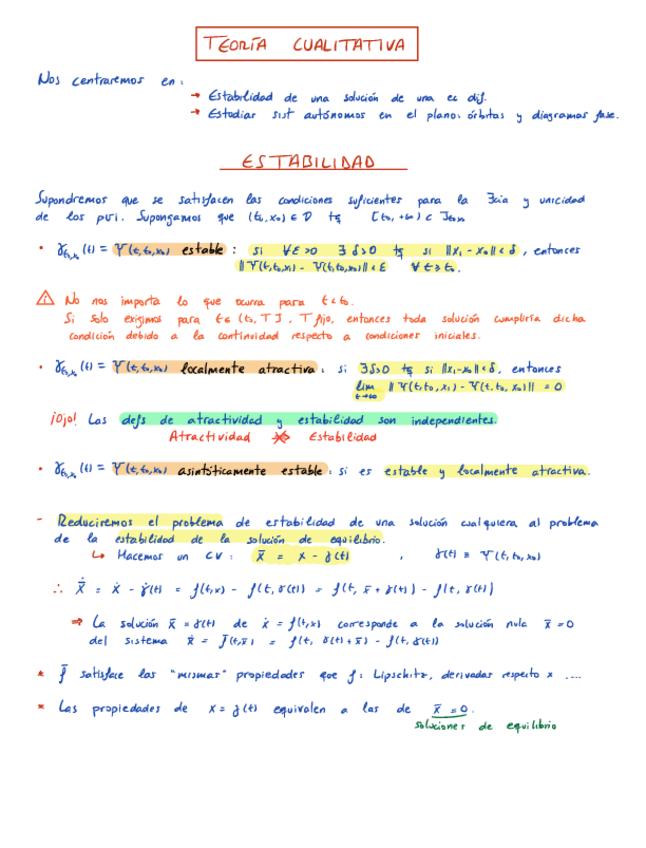 TEORÍA CUALITATIVA
Nos centraremos en:
→ Estabilidad de una solución de una ec dif.
→ Estudiar sist autónomos en el plano: órbitas y diagramas fase.
ESTABILIDAD
Supondremos que se satisfacen las condiciones suficientes para la ∃cia y unicidad
de los pvi. Supongamos que (t₀,x₀) ∈ D tq [t₀, +∞) ⊂ I_{t₀,x₀}
• γ_{t₀,x₀}(t) = Ψ(t,t₀,x₀) estable : si ∀ε>0 ∃ δ>0 tq si ||x₁ - x₀|| < δ, entonces
||Ψ(t,t₀,x₁) - Ψ(t,t₀,x₀)|| < ε ∀t≥t₀.
⚠ No nos importa lo que ocurra para t<t₀.
Si solo exigimos para t∈(t₀,T], T fijo, entonces toda solución cumpliría dicha
condición debido a la continuidad respecto a condiciones iniciales.
• γ_{t₀,x₀}(t) = Ψ(t,t₀,x₀) localmente atractiva : si ∃δ>0 tq si ||x₁-x₀||<δ, entonces
lim t→∞ ||Ψ(t,t₀,x₁) - Ψ(t,t₀,x₀)|| = 0
¡Ojo! Las defs de atractividad y estabilidad son independientes.
Atractividad ⇎ Estabilidad
• γ_{t₀,x₀}(t) = Ψ(t,t₀,x₀) asintóticamente estable : si es estable y localmente atractiva.
- Reduciremos el problema de estabilidad de una solución cualquiera al problema
de la estabilidad de la solución de equilibrio.
↳ Hacemos un CV : x̄ = x - γ(t) , γ(t) ≡ Ψ(t,t₀,x₀)
∴ ẋ̄ = ẋ - γ̇(t) = f(t,x) - f(t,γ(t)) = f(t, x̄ + γ(t)) - f(t,γ(t))
⇒ La solución x̄ = γ(t) de ẋ = f(t,x) corresponde a la solución nula x̄ = 0
del sistema ẋ = f̄(t,x̄) = f(t, γ(t)+x̄) - f(t,γ(t))
* f̄ satisface las "mismas" propiedades que f: Lipschitz, derivadas respecto x ....
* Las propiedades de x = γ(t) equivalen a las de x̄ = 0.
soluciones de equilibrio